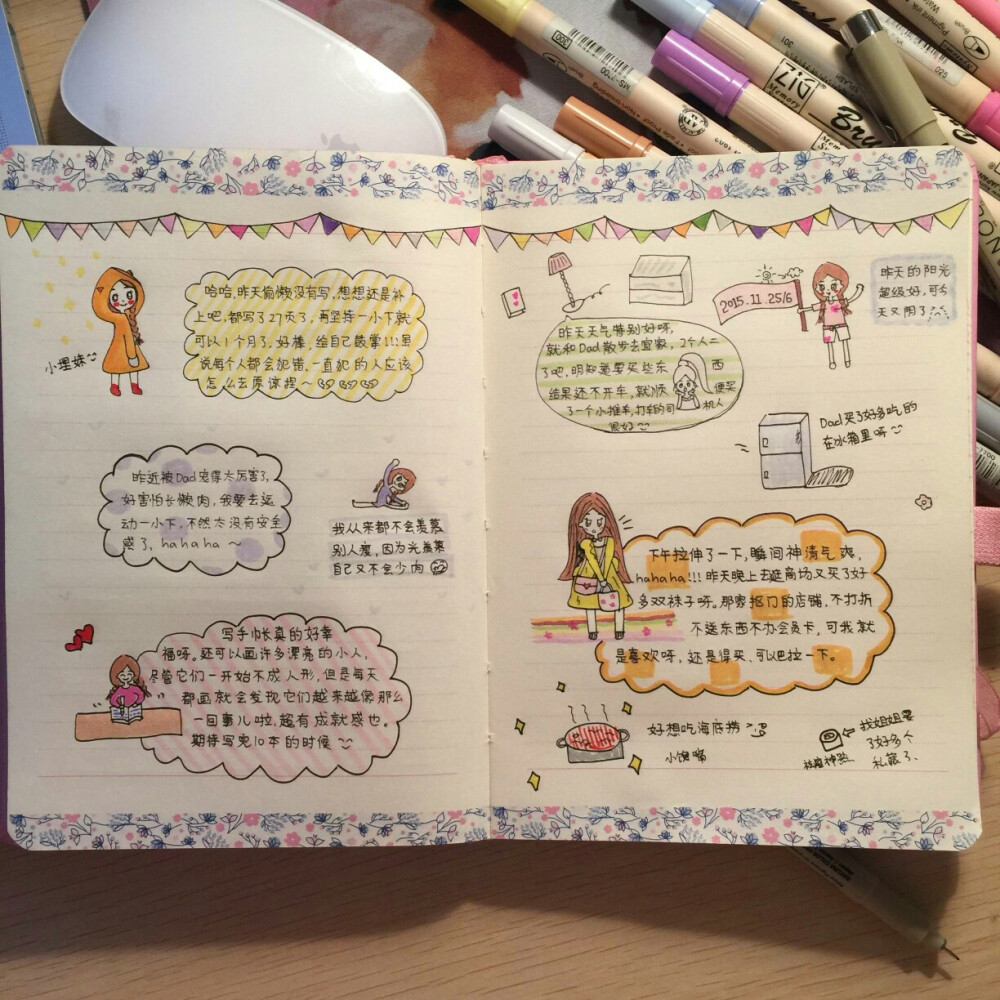 哈哈,昨天偷懒没有写,想想还是补
上吧,都写了27页了,再坚持一小下就
可以1个月了,好棒,给自己鼓掌!!!虽
说每个人都会犯错,一直犯的人应该
怎么去原谅捏~
小埋妹
昨近被Dad宠得太厉害了,
好害怕长懒肉,我要去运
动一小下,不然太没有安全
感了,hahaha ~
我从来都不会羡慕
别人瘦,因为光羡慕
自己又不会少肉
写手帐真的好幸
福呀。还可以画许多漂亮的小人,
尽管它们一开始不成人形,但是每天
都画就会发现它们越来越像那么
一回事儿啦,超有成就感也。
期待写完10本的时候
2015.11.25/6
昨天的阳光
超级好,可今
天又阴了
昨天天气特别好呀,
就和Dad散步去宜家,2个人二
了吧,明知道要买些东西
结果还不开车,就顺便买
了一个小推车,打车的司机人
很好
Dad买了好多吃的
在冰箱里呀
下午拉伸了一下,瞬间神清气爽,
hahaha!!!昨天晚上去逛商场又买了好
多双袜子呀。那家抠门的店铺,不打折
不送东西不办会员卡,可我就
是喜欢呀,还是得买、可以巴拉一下。
好想吃海底捞
小馋嘴
找姐姐要
了好多个
私藏了、
MS-7700
500
DIZ
Memory
Bru
301
020